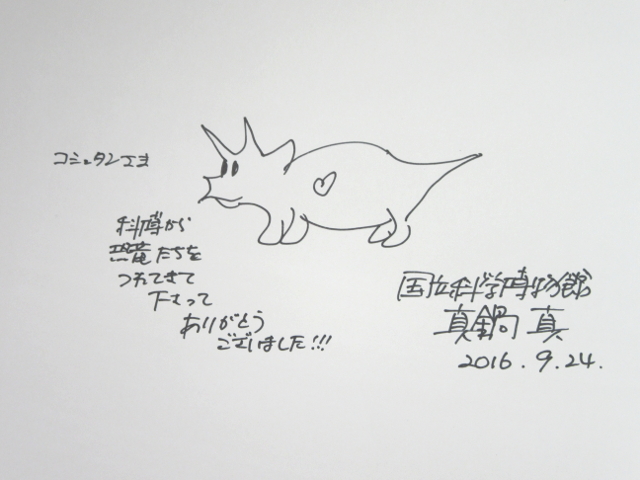 コミュタンさま
科博から
恐竜たちを
つれてきて
下さって
ありがとう
ございました!!!
国立科学博物館
真鍋 真
2016.9.24.